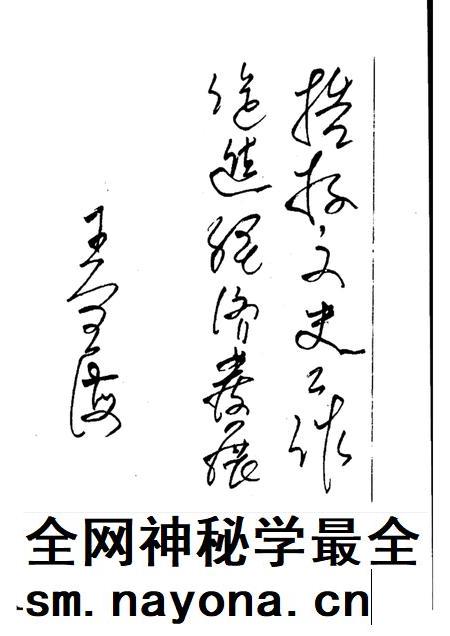 搞好文史工作
促进经济发展
全网神秘学最全
sm.nayona.cn